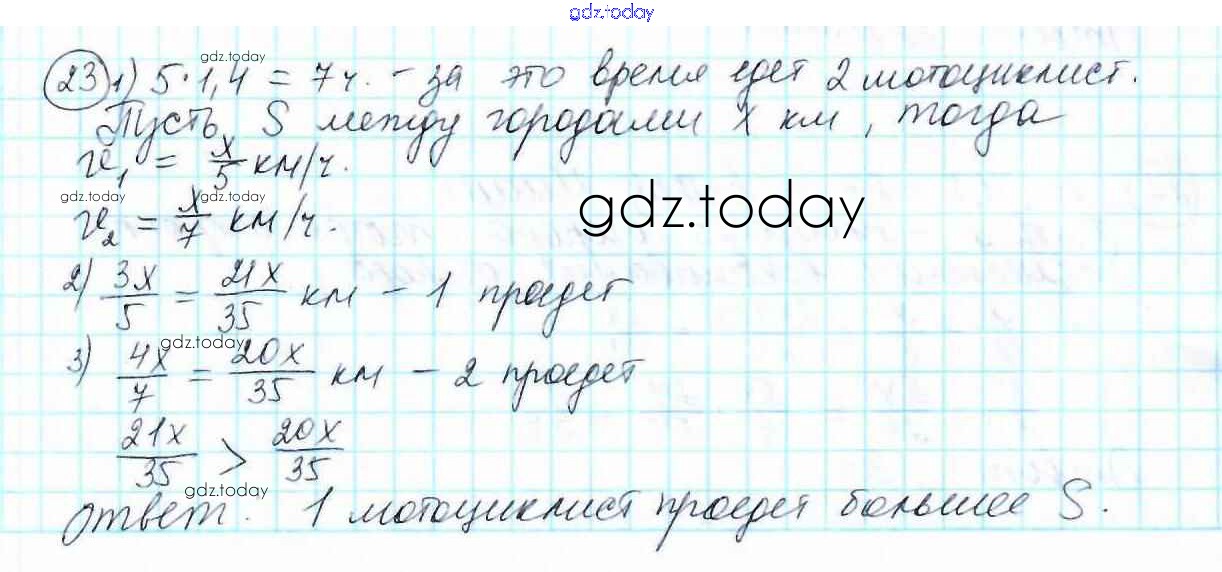 gdz.today
gdz.today
23 1) 5·1,4 = 7ч. – за это время едет 2 мотоциклист.
Пусть S между городами x км, тогда
v₁ = x/5 км/ч.
gdz.today gdz.today
gdz.today
v₂ = x/7 км/ч.
2) 3x/5 = 21x/35 км – 1 проедет
gdz.today
3) 4x/7 = 20x/35 км – 2 проедет
21x/35 > 20x/35
gdz.today
Ответ. 1 мотоциклист проедет большее S.